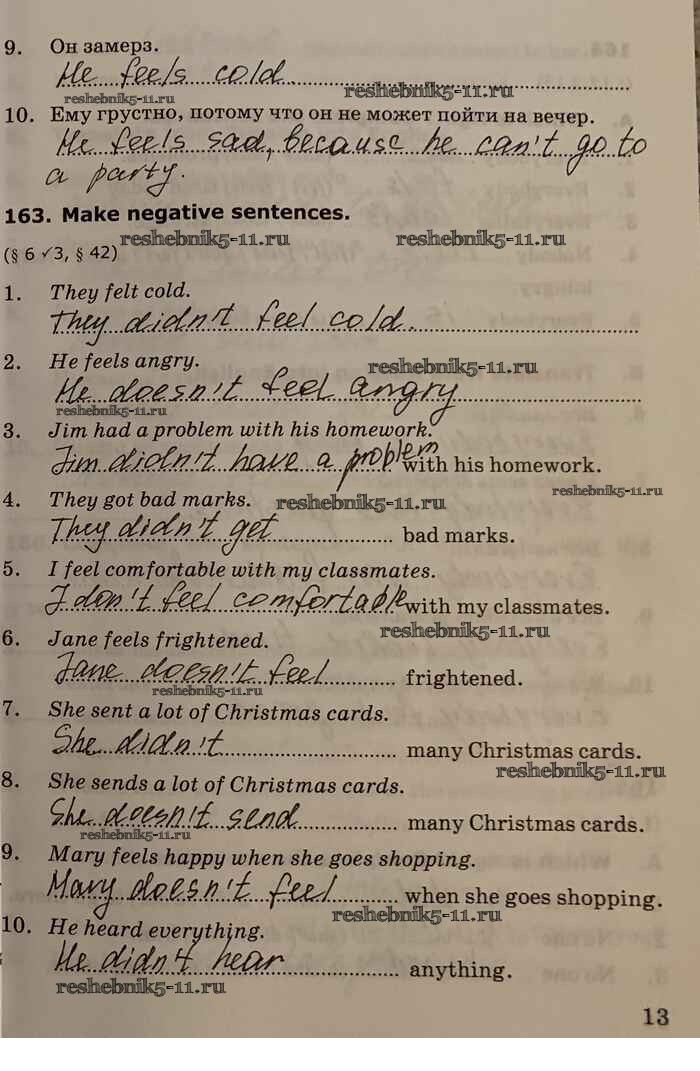 9. Он замерз.
He feels cold
reshebnik5-11.ru
reshebnik5-11.ru
10. Ему грустно, потому что он не может пойти на вечер.
He feels sad, because he can't go to
a party.
163. Make negative sentences.
reshebnik5-11.ru reshebnik5-11.ru
(§ 6 ✓3, § 42)
1. They felt cold.
They didn't feel cold.
2. He feels angry.
reshebnik5-11.ru
He doesn't feel angry
reshebnik5-11.ru
3. Jim had a problem with his homework.
Jim didn't have a problem with his homework.
reshebnik5-11.ru
4. They got bad marks.
reshebnik5-11.ru
They didn't get bad marks.
5. I feel comfortable with my classmates.
I don't feel comfortable with my classmates.
reshebnik5-11.ru
6. Jane feels frightened.
Jane doesn't feel frightened.
reshebnik5-11.ru
7. She sent a lot of Christmas cards.
She didn't many Christmas cards.
reshebnik5-11.ru
8. She sends a lot of Christmas cards.
She doesn't send many Christmas cards.
reshebnik5-11.ru
9. Mary feels happy when she goes shopping.
Mary doesn't feel when she goes shopping.
reshebnik5-11.ru
10. He heard everything.
He didn't hear anything.
reshebnik5-11.ru
13